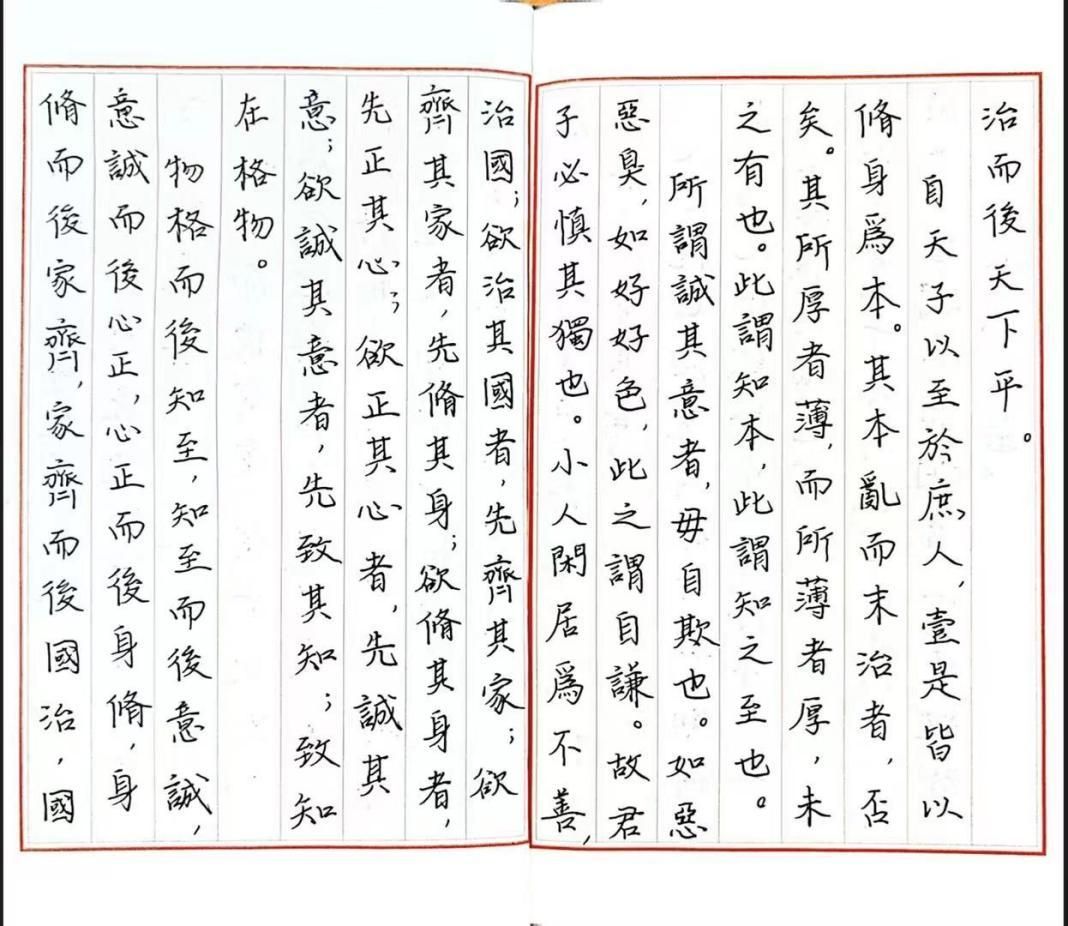 治國；欲治其國者，先齊其家；欲
齊其家者，先脩其身；欲脩其身者，
先正其心；欲正其心者，先誠其
意；欲誠其意者，先致其知；致知
在格物。
物格而後知至，知至而後意誠，
意誠而後心正，心正而後身脩，身
脩而後家齊，家齊而後國治，國
治而後天下平。
自天子以至於庶人，壹是皆以
脩身爲本。其本亂而末治者，否
矣。其所厚者薄，而所薄者厚，未
之有也。此謂知本，此謂知之至也。
所謂誠其意者，毋自欺也。如惡
惡臭，如好好色，此之謂自謙。故君
子必慎其獨也。小人閑居爲不善，